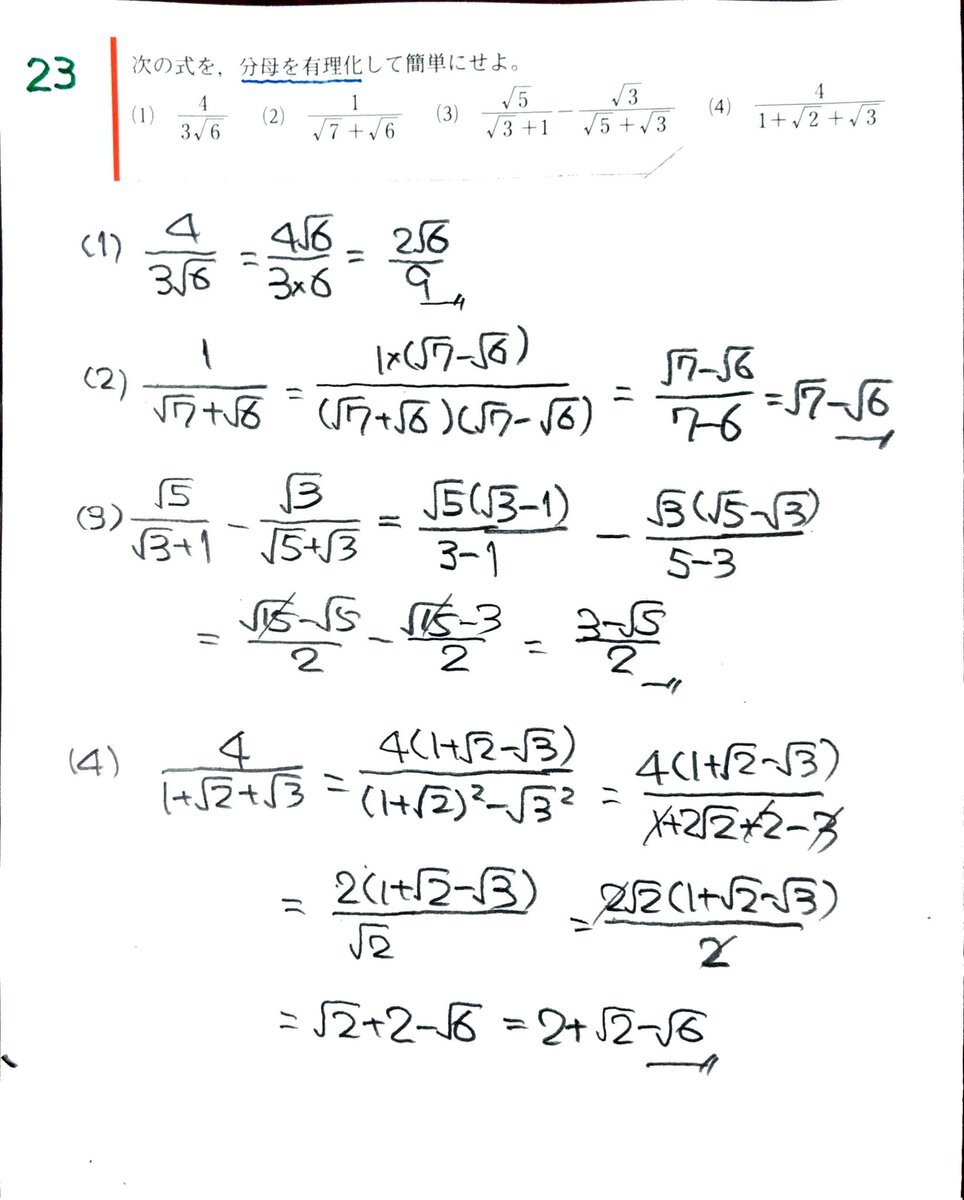 23
次の式を，分母を有理化して簡単にせよ。
(1) 4/(3√6) (2) 1/(√7+√6) (3) √5/(√3+1) − √3/(√5+√3) (4) 4/(1+√2+√3)
(1) 4/(3√6) = 4√6/(3×6) = 2√6/9
(2) 1/(√7+√6) = 1×(√7−√6)/((√7+√6)(√7−√6)) = (√7−√6)/(7−6) = √7−√6
(3) √5/(√3+1) − √3/(√5+√3) = √5(√3−1)/(3−1) − √3(√5−√3)/(5−3)
= (√15−√5)/2 − (√15−3)/2 = (3−√5)/2
(4) 4/(1+√2+√3) = 4(1+√2−√3)/((1+√2)²−√3²) = 4(1+√2−√3)/(1+2√2+2−3)
= 2(1+√2−√3)/√2 = 2√2(1+√2−√3)/2
= √2+2−√6 = 2+√2−√6